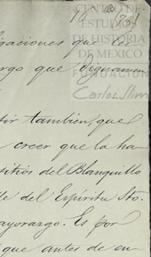 CENTRO DE
ESTUDIOS
DE HISTORIA
DE MEXICO
FUNDACIÓN
Carlos Slim
raciones que
rgo que
tir tambien, que
creer que la ha
sitios del Blanquillo
de del Espíritu Sto.
ayorazgo. Es por
que antes de en